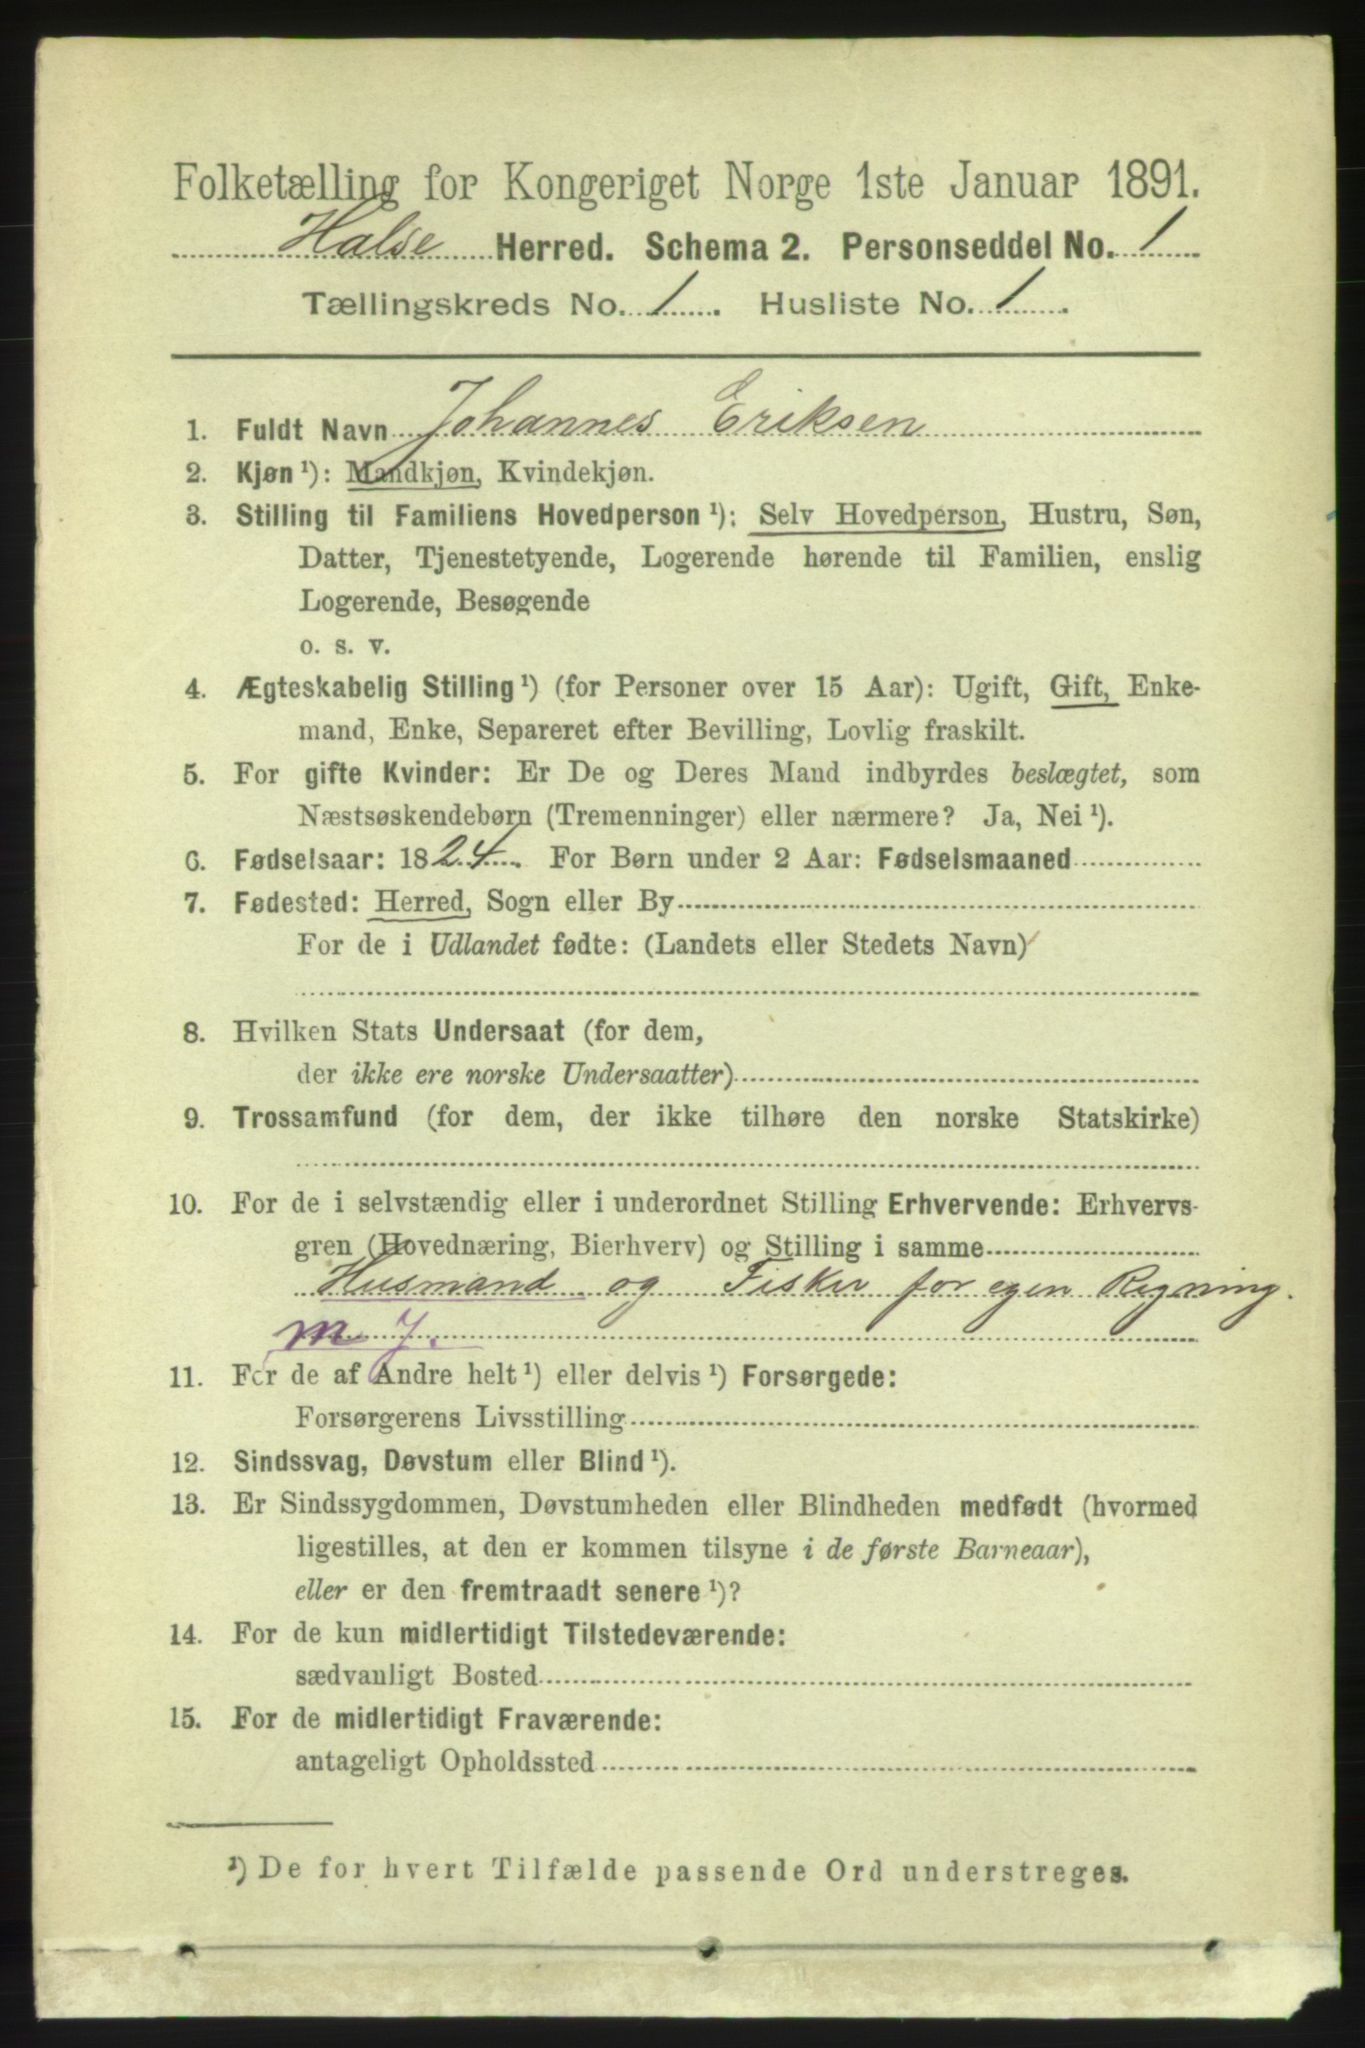 Folketælling for Kongeriget Norge 1ste Januar 1891.
Halse Herred. Schema 2. Personseddel No. 1
Tællingskreds No. 1. Husliste No. 1.
1. Fuldt Navn Johannes Eriksen
2. Kjøn ¹): Mandkjøn, Kvindekjøn.
3. Stilling til Familiens Hovedperson ¹): Selv Hovedperson, Hustru, Søn,
Datter, Tjenestetyende, Logerende hørende til Familien, enslig
Logerende, Besøgende
o. s. v.
4. Ægteskabelig Stilling ¹) (for Personer over 15 Aar): Ugift, Gift, Enke-
mand, Enke, Separeret efter Bevilling, Lovlig fraskilt.
5. For gifte Kvinder: Er De og Deres Mand indbyrdes beslægtet, som
Næstsøskendebørn (Tremenninger) eller nærmere? Ja, Nei ¹).
6. Fødselsaar: 1824. For Børn under 2 Aar: Fødselsmaaned
7. Fødested: Herred, Sogn eller By
For de i Udlandet fødte: (Landets eller Stedets Navn)
8. Hvilken Stats Undersaat (for dem,
der ikke ere norske Undersaatter)
9. Trossamfund (for dem, der ikke tilhøre den norske Statskirke)
10. For de i selvstændig eller i underordnet Stilling Erhvervende: Erhvervs-
gren (Hovednæring, Bierhverv) og Stilling i samme
Husmand og Fisker for egen Regning.
m J.
11. For de af Andre helt ¹) eller delvis ¹) Forsørgede:
Forsørgerens Livsstilling
12. Sindssvag, Døvstum eller Blind ¹).
13. Er Sindssygdommen, Døvstumheden eller Blindheden medfødt (hvormed
ligestilles, at den er kommen tilsyne i de første Barneaar),
eller er den fremtraadt senere ¹)?
14. For de kun midlertidigt Tilstedeværende:
sædvanligt Bosted
15. For de midlertidigt Fraværende:
antageligt Opholdssted
¹) De for hvert Tilfælde passende Ord understreges.